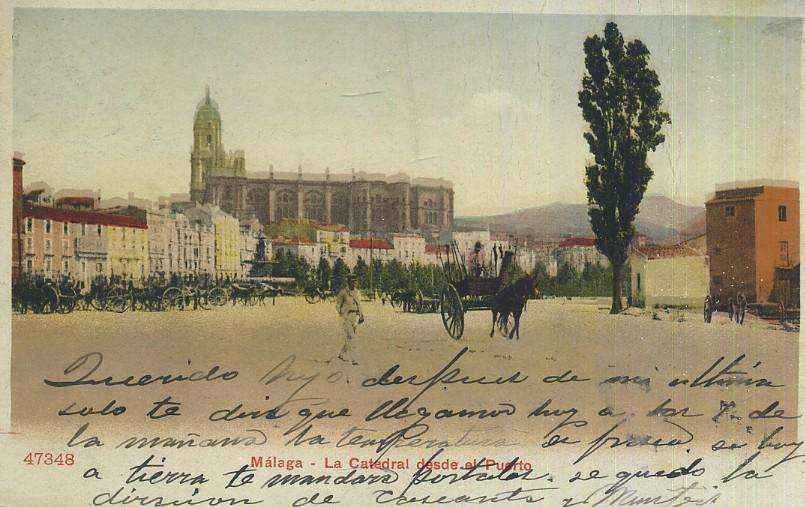 Querido hijo. despues de mi ultima
solo te dire que llegamos hoy a las 7. de
la mañana la temperatura es fresca si hoy
47348
Málaga - La Catedral desde el Puerto
a tierra te mandare postales. se quedo la
dirsion de y